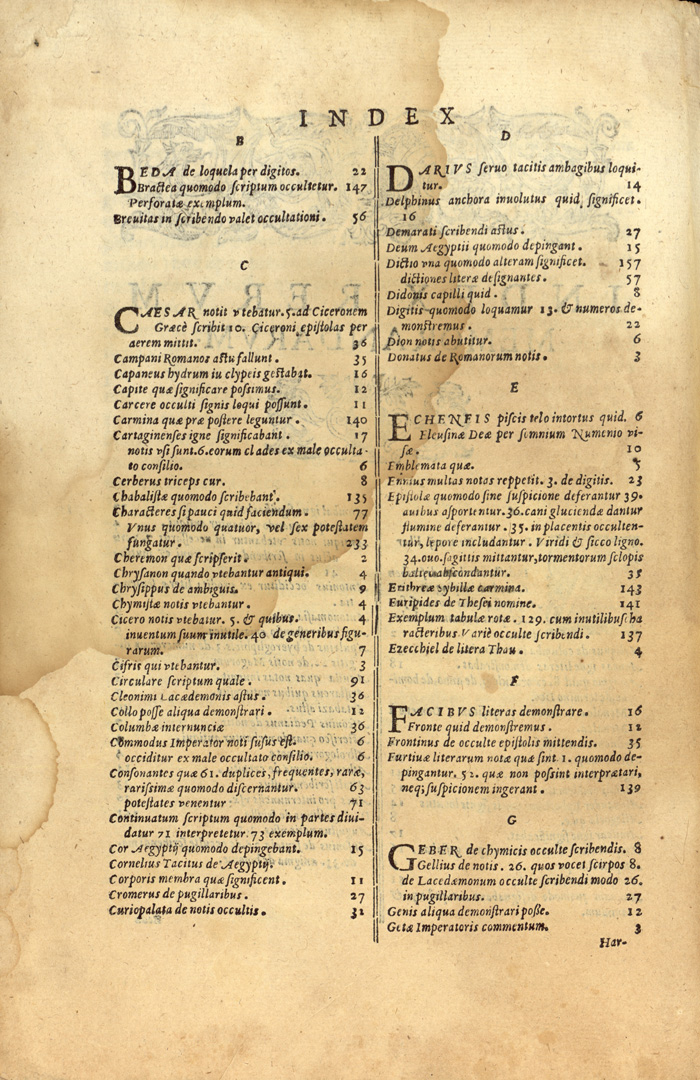 INDEX
B
BEDA de loquela per digitos. 22
Bractea quomodo scriptum occultetur. 147
Perforatæ exemplum.
Breuitas in scribendo valet occultationi. 56
C
CAESAR notis vtebatur. 5. ad Ciceronem
Græcè scribit 10. Ciceroni epistolas per
aerem mittit. 36
Campani Romanos astu fallunt. 35
Capaneus hydrum iu clypeis gestabat. 16
Capite quæ significare possimus. 12
Carcere occulti signis loqui possunt. 11
Carmina quæ præ postere leguntur. 140
Cartaginenses igne significabant. 17
notis vsi sunt. 6. eorum clades ex male occulta-
to consilio. 6
Cerberus triceps cur. 8
Chabalistæ quomodo scribebant. 135
Characteres si pauci quid faciendum. 77
Vnus quomodo quatuor, vel sex potestatem
fungatur. 233
Cheremon quæ scripserit. 2
Chrysanon quando vtebantur antiqui. 4
Chrysippus de ambiguis. 9
Chymistæ notis vtebantur. 4
Cicero notis vtebatur. 5. & quibus. 4
inuentum suum inutile. 40 de generibus figu-
rarum. 7
Cifris qui vtebantur. 3
Circulare scriptum quale. 91
Cleonimi Lacædemonis astus. 36
Collo posse aliqua demonstrari. 12
Columbæ internunciæ 36
Commodus Imperator noti susus est. 6
occiditur ex male occultato consilio. 6
Consonantes quæ 61. duplices, frequentes, raræ,
rarissimæ quomodo discernantur. 63
potestates venentur 71
Continuatum scriptum quomodo in partes diui-
datur 71 interpretetur. 73 exemplum.
Cor Aegyptij quomodo depingebant. 15
Cornelius Tacitus de Aegyptijs.
Corporis membra quæ significent. 11
Cromerus de pugillaribus. 27
Curiopalata de notis occultis. 31
D
DARIVS seruo tacitis ambagibus loqui-
tur. 14
Delphinus anchora inuolutus quid significet.
16
Demarati scribendi astus. 27
Deum Aegyptii quomodo depingant. 15
Dictio vna quomodo alteram significet. 157
dictiones literæ designantes. 57
Didonis capilli quid. 8
Digitis quomodo loquamur 13. & numeros de-
monstremus. 22
Dion notis abutitur. 6
Donatus de Romanorum notis. 3
E
ECHENEIS piscis telo intortus quid. 6
Eleusinæ Deæ per somnium Numenio vi-
sæ. 10
Emblemata quæ. 5
Ennius multas notas reppetit. 3. de digitis. 23
Epistolæ quomodo sine suspicione deferantur 39.
auibus asportentur. 36. cani gluciendæ dantur
flumine deferantur. 35. in placentis occulten-
tur, lepore includantur. Viridi & sicco ligno.
34. ouo. sagittis mittantur, tormentorum sclopis
abscondantur. 35
Erithreæ sybillæ carmina. 143
Euripides de Thesei nomine. 141
Exemplum tabulæ rotæ. 129. cum inutilibus cha
racteribus Varie occulte scribendi. 137
Ezecchiel de litera Thau. 4
F
FACIBVS literas demonstrare. 16
Fronte quid demonstremus. 12
Frontinus de occulte epistolis mittendis. 35
Furtiuæ literarum notæ quæ sint 1. quomodo de-
pingantur. 52. quæ non possint interprætari,
neq; suspicionem ingerant. 139
G
GEBER de chymicis occulte scribendis. 8
Gellius de notis. 26. quos vocet scirpos 8.
de Lacedæmonum occulte scribendi modo 26.
in pugillaribus. 27
Genis aliqua demonstrari poße. 12
Getæ Imperatoris commentum. 3
Har-